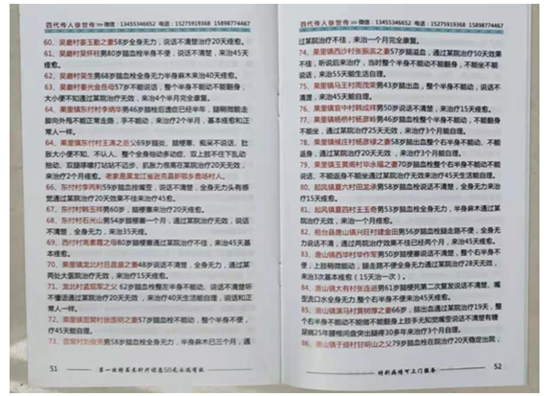 四代传人徐世传>> 微信：13455346652 电话：15275919368 15898774467
60、吴磨村秦玉勤之妻58岁全身无力，说话不清楚治疗20天痊愈。
61、吴磨村荣怀柱男80岁脑血栓全身无力治疗20天痊愈。
62、吴磨村荣生男脑血栓全身无力半身麻木来治40天痊愈。
63、吴磨村姜光金岳母67岁脑血栓，整个半身不能动不能翻身，
大小便不知通过某院治疗无效，来治4个月完全康复。
64、果里镇东付村李炳华男46岁脑栓后遗症已经半年，腿稍微能走
脚向外甩不能正常走路，手不能动，来治疗2个半月，基本痊愈和正
常人一样。
65、果里镇东付村王涛之岳父69岁脑炎、脑梗塞，痴呆不说话、肚
胀大小便不知、不认人、整个全身抽动多动症、双上肢不住下乱动
抽动、双腿哆嗦打站站不迈步、肌胀力很高在某院治疗20天无效，
来治疗2个月痊愈。老家是黑龙江省逊克县新鄂乡贵场村人。
66、东付村李丙利59岁脑栓嘴歪，说话不清楚，全身无力头有感
觉通过某院治疗20天效果不佳来治疗45天。
67、东付村韩玉祥男60岁，脑梗塞来治疗20天痊愈。
68、东付村石光山男54岁脑梗塞一个月，通过某院治疗无效，说话
不清楚，全身无力，来治35天痊。
69、西付村高素霞之母80岁脑梗塞通过某院治疗不佳，来治45天基
本痊愈。
70、果里镇龙北村吕昌盛之妻48岁说话不清楚，全身无力，通过某
两处大医院治疗无效，来治20天痊愈。
71、龙北村孟现军之父62岁脑血栓整左半身不能动，说话不清楚听
不懂话通过某院治疗20天无效，来治疗40天生活能自理，说话和正
常人一样。
72、果里镇昝家村张连刚之妻57岁脑血栓不能动，整个半身不便，
疗45天能自理。
半身麻木已三个月，通
51
第一波特百志针疗论先50元不返有效
四代传人徐世传>> 微信：13455346652 电话：15275919368 15898774467
过某院治疗不佳，来治一个月完全康复。
74、果里镇西沙村张振滨之妻57岁脑溢血，通过某院治疗50天效果
不佳，听说后来治疗，当时整个半身不能动不能翻身，不能坐不能
说话，来治55天能生活自理。
75、果里镇马王村周茂荣男43岁脑出血，整个半身不能动，说话不
清楚，来治45天自理。
76、果里镇官中村韩成祥男50岁说话不清楚，来治疗3个月自理。
77、果里镇杨桥村杨彦岭男46岁脑血栓整个半身不能动，不能翻身
不能坐，通过某院治疗20天无效，来治3个月能自理。
78、果里镇侯庄村杨彦绪之妻68岁脑出血整个右半身不能动，不能
返身，通过某院治疗20天无效，来治3个月能自理。
79、果里镇玉黄阁村毕永福之妻70岁脑血栓整个右半身不能动，不
能返身，通过某院治疗15天无效果来治疗45天生活能自理。
80、起凤镇夏六村田龙承男58岁脑血栓说话不清楚，全身无力，通
过某院治疗10天无效，来治20天痊愈。
81、起凤镇夏四村王玉奇男53岁脑血栓全身无力，半身麻木通过某
院治疗不佳，来治45天痊愈。
82、桓台县唐山镇兴旺村建金田男56岁脑血栓腿走路不便，全身无
力说话不清，通过两院治疗效果不佳已经两个月，来治45天痊愈。
83、唐山镇西华村华作军男50岁脑梗塞说话不清楚，整个右半身不
便，上肢稍微能动，腿走路不便全身无力通过两院治疗不佳20天，
来治3次基本痊愈（15天治一次）。
84、唐山镇大有村张连进男61岁脑梗死第二次复发说话不清楚，嘴
歪流口水全身无力，整个右半身不便来治45天痊愈。
85、唐山镇演马村黄树厚之妻66岁，脑出血通过某院治疗19天，整
个右半身不能动不能做不能翻身上肢手无知觉嘴歪说话不清楚有糖
尿病25年腰椎间盘突出腿疼30多年来治疗3个月自理。
86、唐山镇于堤村甘明山之父79岁脑血栓在院治疗20天稳定出院，
52
特别病情可上门服务